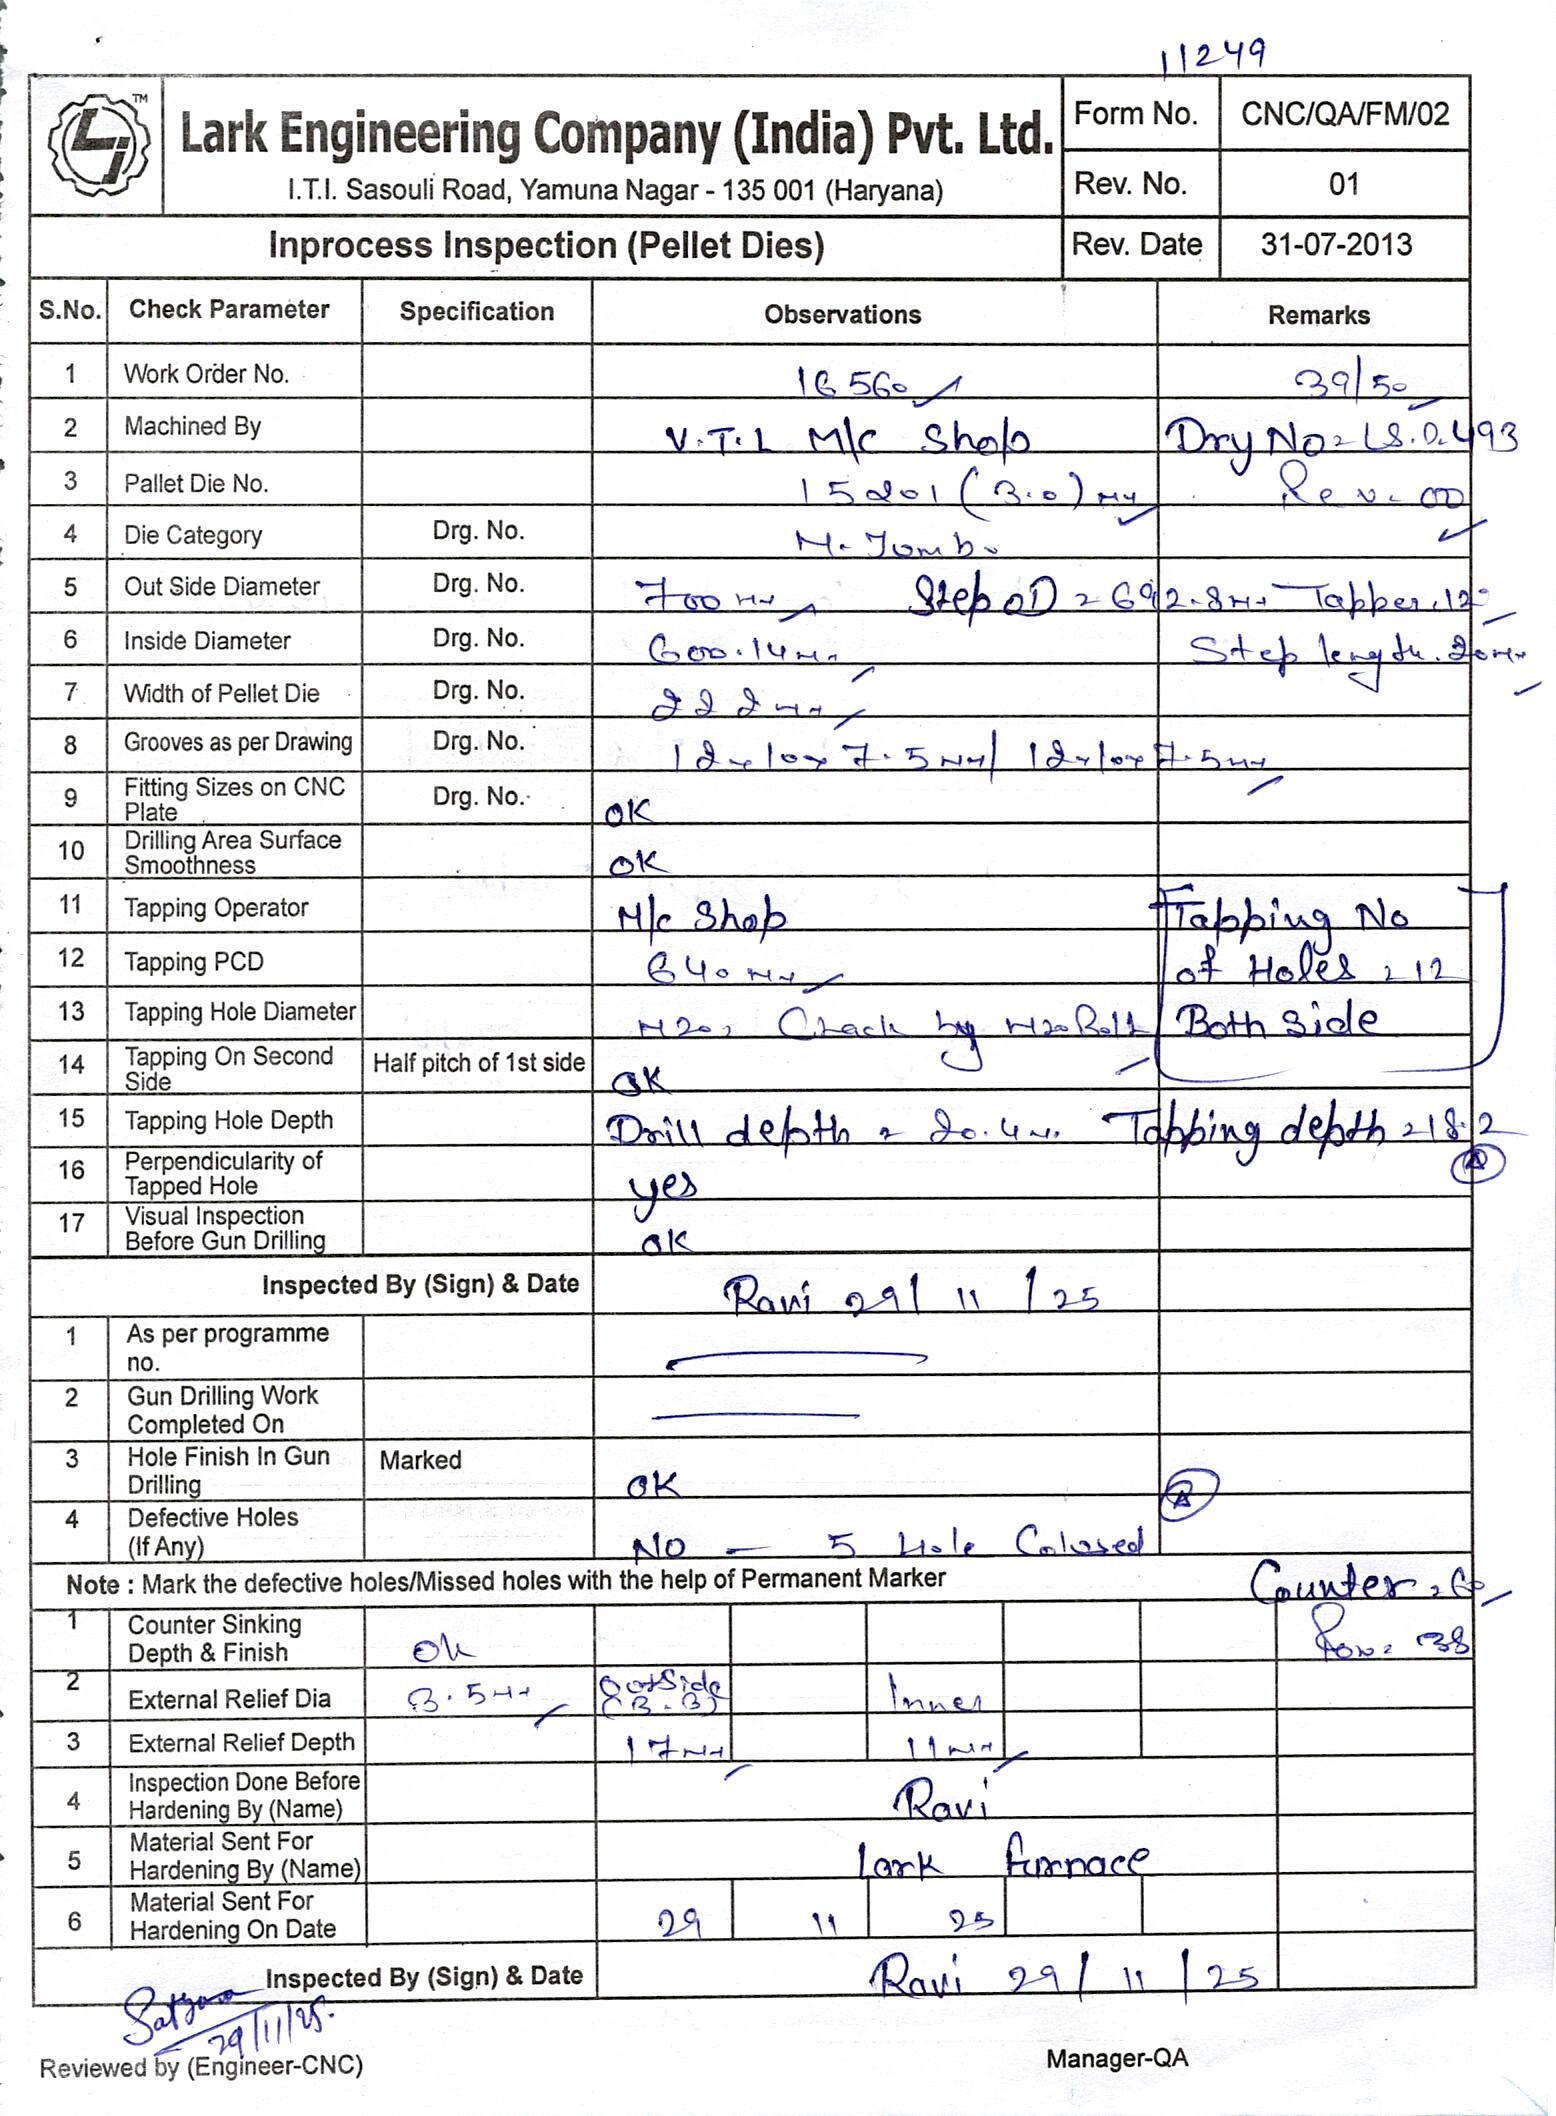 11249
TM
Lark Engineering Company (India) Pvt. Ltd.
I.T.I. Sasouli Road, Yamuna Nagar - 135 001 (Haryana)
Form No. CNC/QA/FM/02
Rev. No. 01
Inprocess Inspection (Pellet Dies) Rev. Date 31-07-2013
S.No. Check Parameter Specification Observations Remarks
1 Work Order No. 16560 39/50
2 Machined By V.T.L M/c Shop
3 Pallet Die No. 15201 (3.0) Rev. 00
4 Die Category Drg. No.
5 Out Side Diameter Drg. No. 700 Step OD = 692.8 Tapper. 12°
6 Inside Diameter Drg. No. 600.14 Step length. 20
7 Width of Pellet Die Drg. No. 222
8 Grooves as per Drawing Drg. No. 12x10x7.5 / 12x10x7.5
9 Fitting Sizes on CNC Plate Drg. No. OK
10 Drilling Area Surface Smoothness OK
11 Tapping Operator M/c Shop Tapping No
12 Tapping PCD 640 of Holes = 12
13 Tapping Hole Diameter M20, Check by M20 Bolt Both Side
14 Tapping On Second Side Half pitch of 1st side OK
15 Tapping Hole Depth Drill depth = 20.4 Tapping depth = 18.2
16 Perpendicularity of Tapped Hole yes
17 Visual Inspection Before Gun Drilling OK
Inspected By (Sign) & Date Ravi 29/11/25
1 As per programme no.
2 Gun Drilling Work Completed On
3 Hole Finish In Gun Drilling Marked OK
4 Defective Holes (If Any) NO — 5 Hole
Note : Mark the defective holes/Missed holes with the help of Permanent Marker Counter =
1 Counter Sinking Depth & Finish Ok 38
2 External Relief Dia 3.5 OutSide Inner
3 External Relief Depth 17 11
4 Inspection Done Before Hardening By (Name) Ravi
5 Material Sent For Hardening By (Name) Lark furnace
6 Material Sent For Hardening On Date 29 11 25
Inspected By (Sign) & Date Ravi 29/11/25
29/11/25.
Reviewed by (Engineer-CNC) Manager-QA